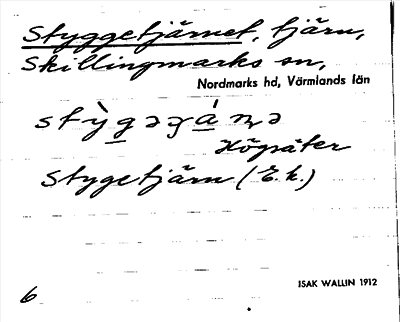 Styggetjärnet, tjärn,
Skillingmarks sn,
Nordmarks hd, Värmlands län
Högsäter
Stygetjärn (E.k.)
6
ISAK WALLIN 1912